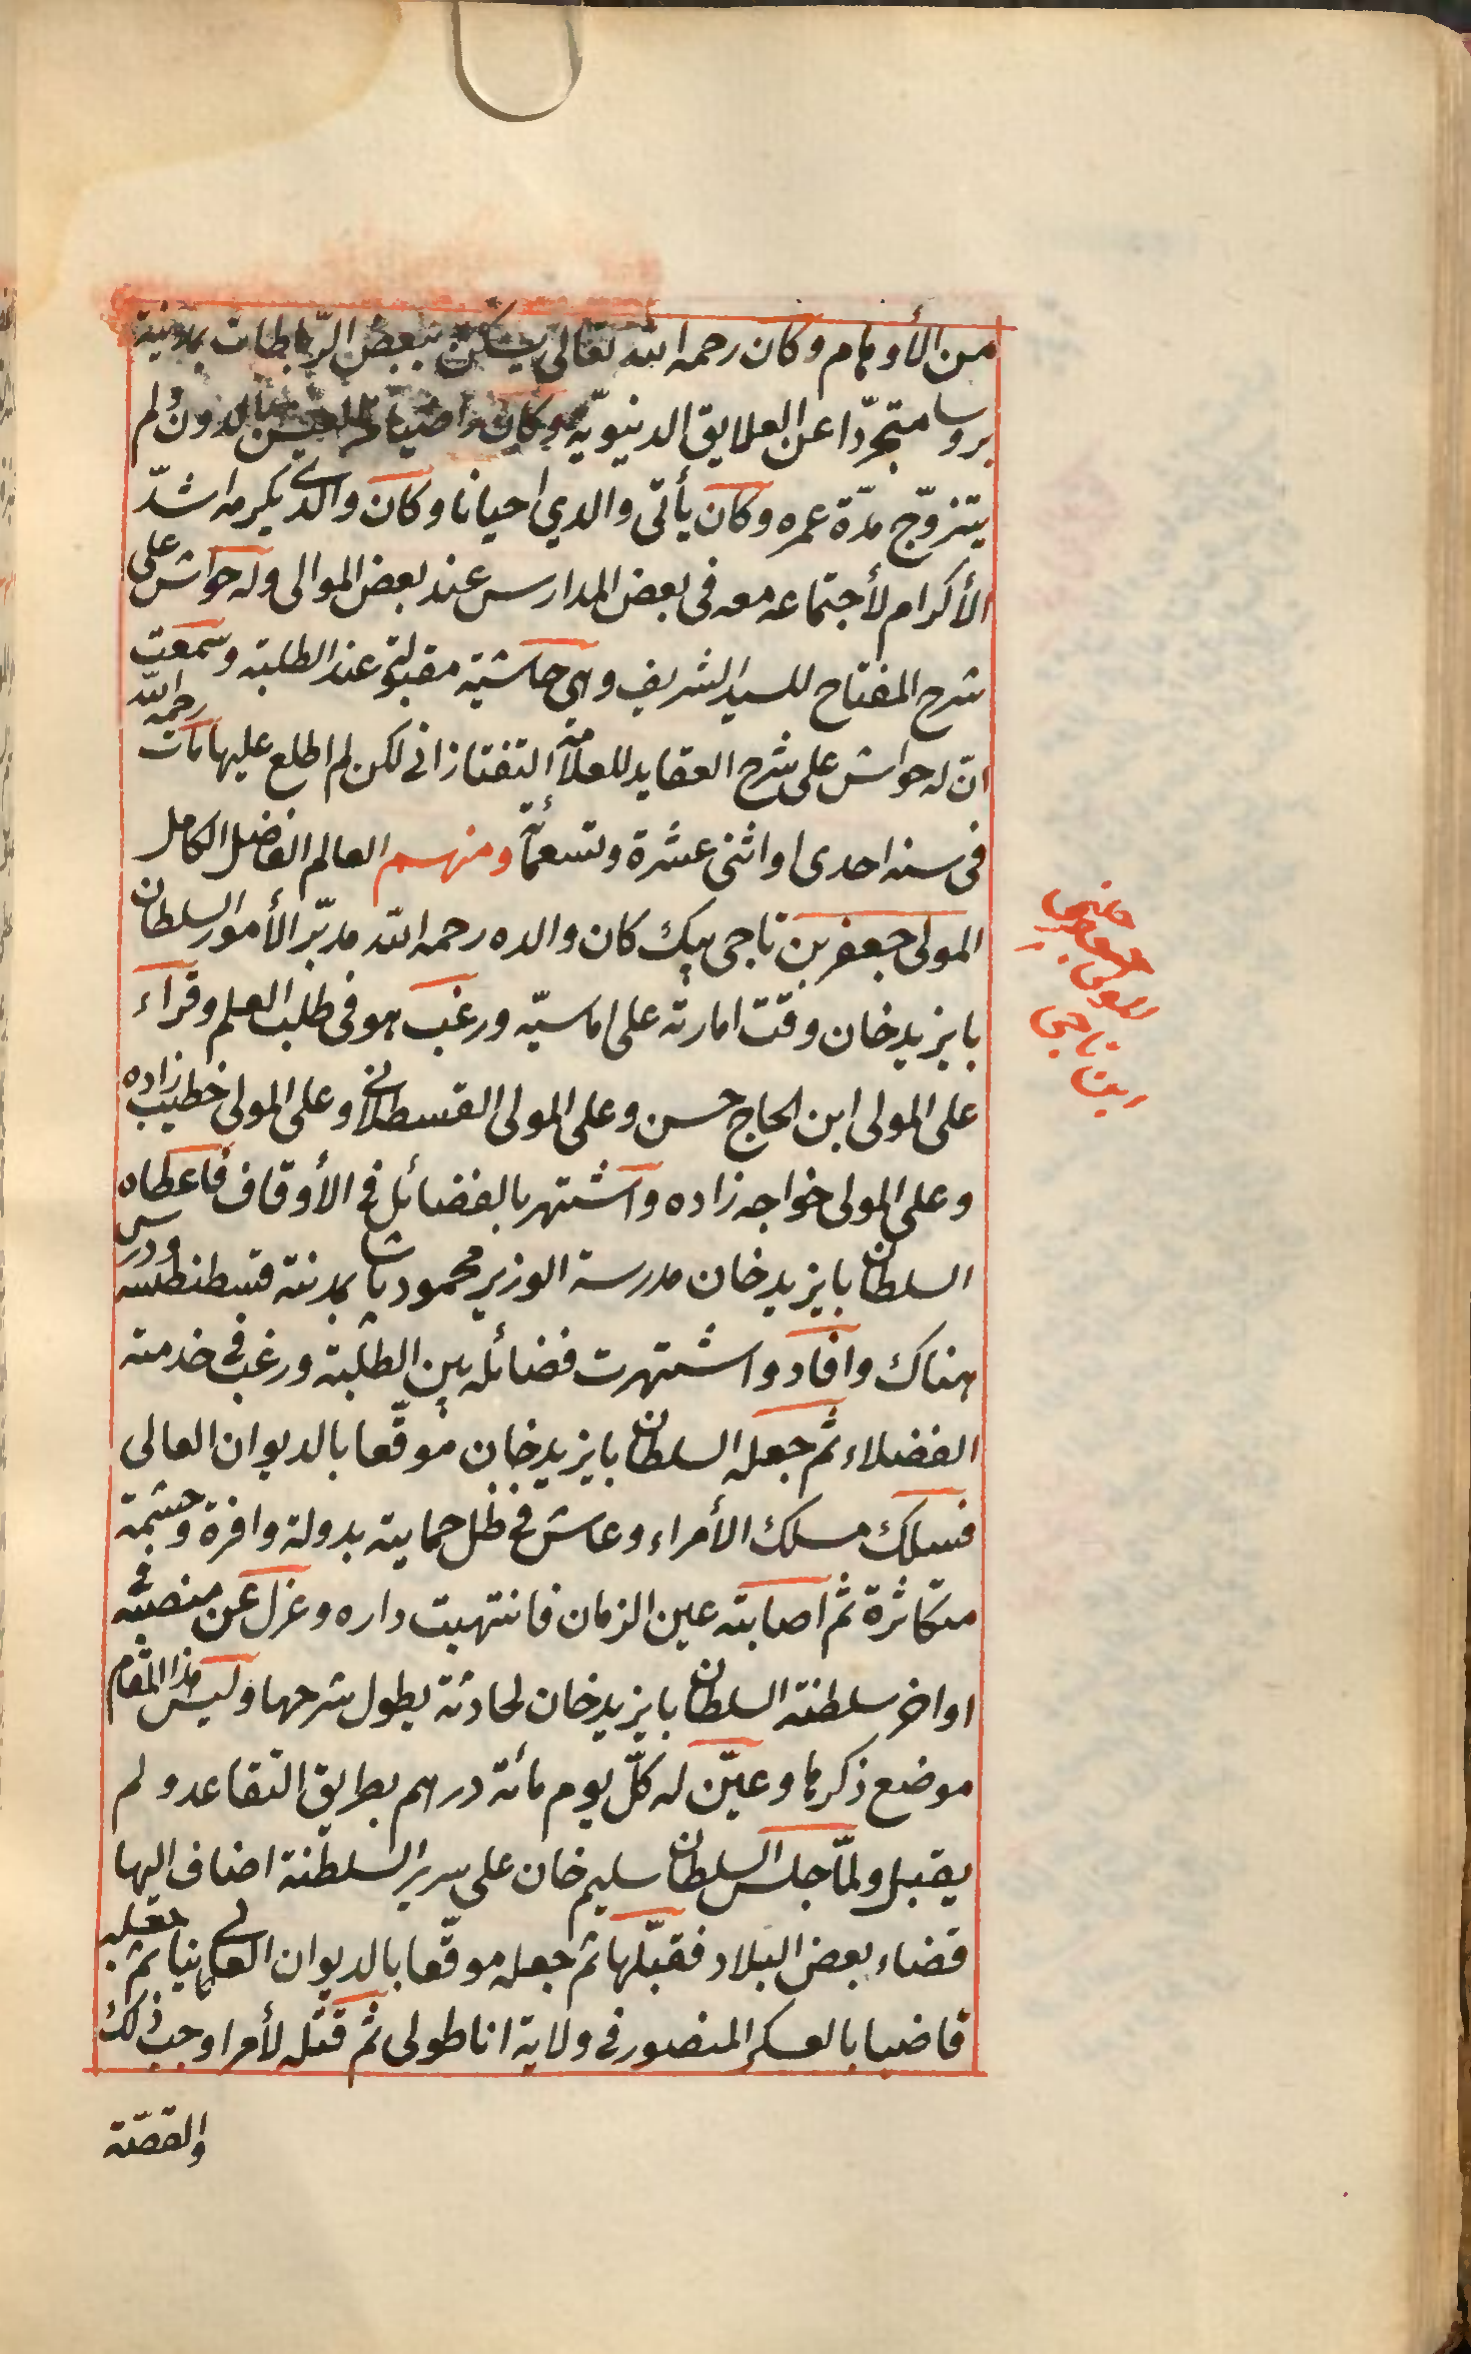 من الأوهام وكان رحمه الله تعالى يسكن ببعض الرباطات بمدينة
بروسا متجرّدا عن العلايق الدنيويّة وكان راضيا من العيش بالدون ولم
يتزوّج مدّة عمره وكان يأتى والدي احيانا وكان والدى يكرمه اشدّ
الأكرام لأجتماعه معه فى بعض المدارس عند بعض الموالى وله حواش على
شرح المفتاح للسيد الشريف وهى حاشية مقبولة عند الطلبة وسمعت
انّ له حواش على شرح العقايد للعلامة التفتازانى لكن لم اطلع عليها مات رحمه الله
فى سنه احدى او اثنى عشرة وتسعمائة ومنهم العالم الفاضل الكامل
المولى جعفر بن ناجى بيك كان والده رحمه الله مدبّر الأمور السلطان
بايزيد خان وقت امارته على اماسيّه ورغب هو فى طلب العلم وقرأء
على المولى ابن الحاج حسن وعلى المولى القسطلانى وعلى المولى خطيب زاده
وعلى المولى خواجه زاده واشتهر بالفضائل فى الأوقاف فاعطاه
السلطان بايزيد خان مدرسة الوزير محمود پاشا بمدينة قسطنطنيه ودرس
هناك وافاد واشتهرت فضائله بين الطلبة ورغب فى خدمته
الفضلاء ثم جعله السلطان بايزيد خان موقّعا بالديوان العالى
فسلك مسلك الأمراء وعاش فى ظل حمايته بدولة وافرة وحشمة
متكاثرة ثم اصابته عين الزمان فانتهبت داره وعزل عن منصبه فى
اواخر سلطنة السلطان بايزيد خان لحادثة يطول شرحها وليس هذا المقام
موضع ذكرها وعيّن له كلّ يوم مائة درهم بطريق التقاعد ولم
يقبل ولمّا جلس السلطان سليم خان على سرير السلطنة اضاف اليها
قضاء بعض البلاد فقبّلها ثم جعله موقّعا بالديوان العالى ثانيا ثم جعله
قاضيا بالعسكر المنصور فى ولاية اناطولى ثم قتله لأمر اوجب ذلك
والقصّة
المولى
ابن ناجى